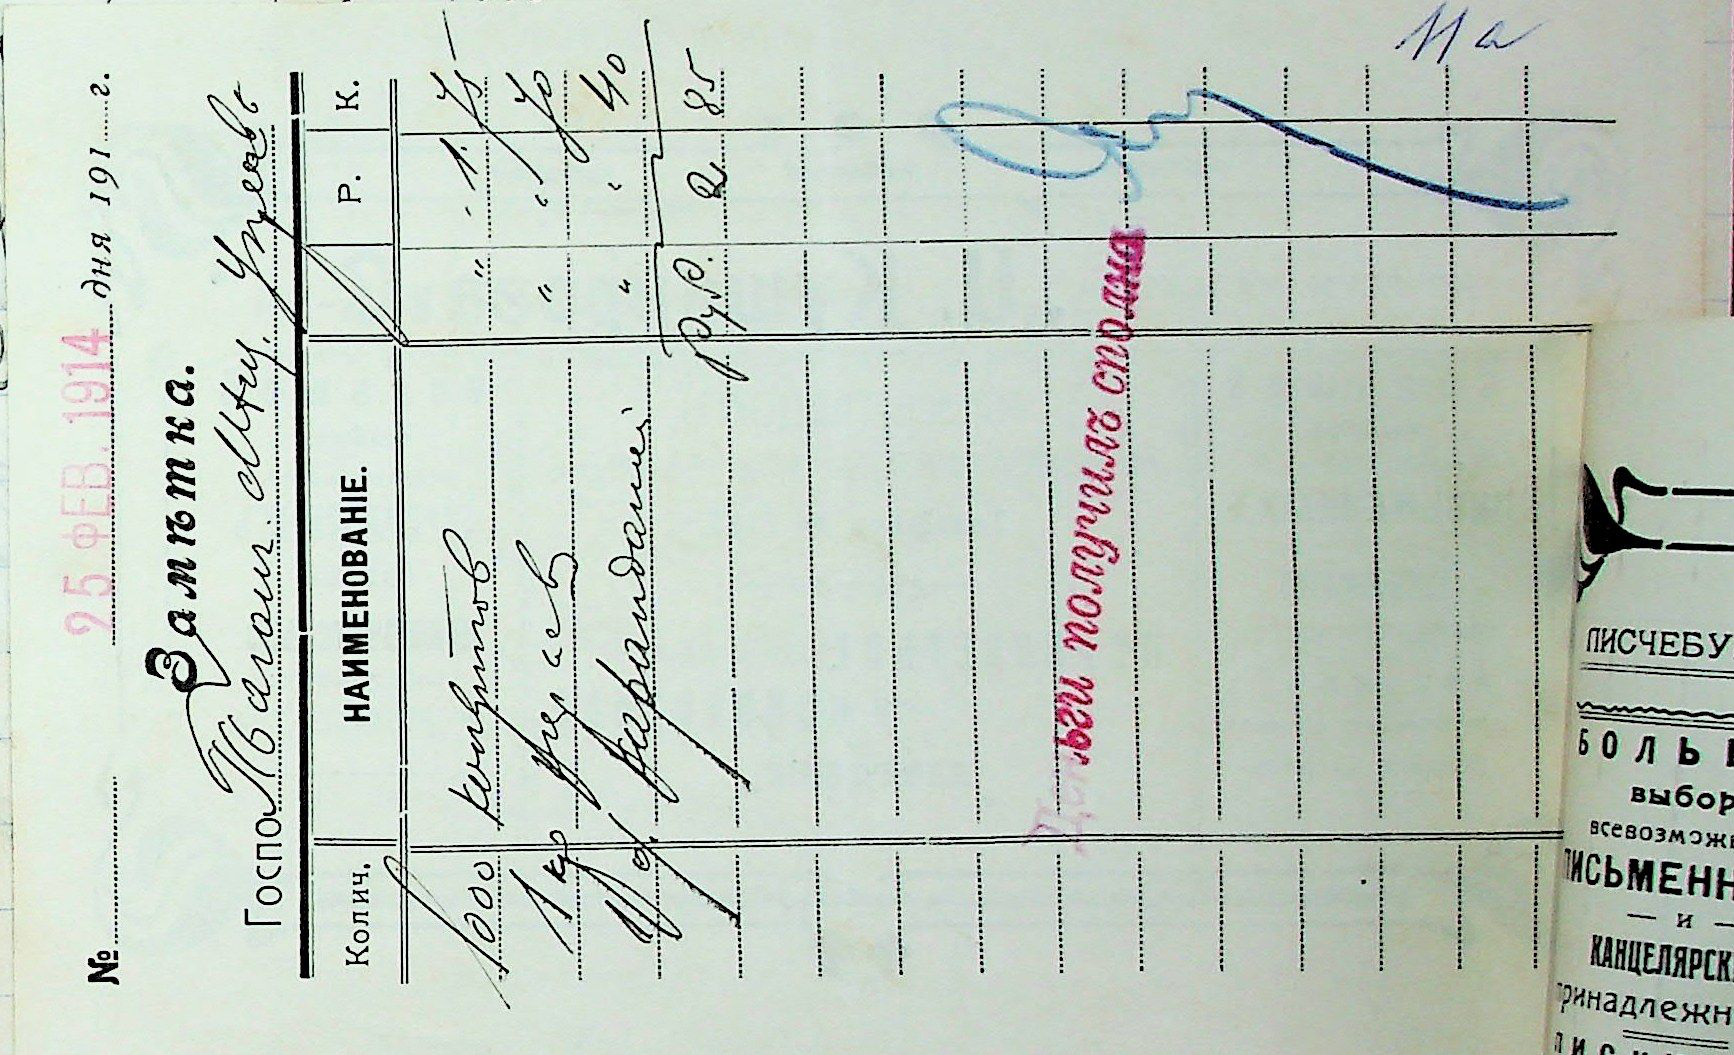 25 ФЕВ. 1914
№ дня 191 г.
Замѣтка.
Госпо
Колич. НАИМЕНОВАНІЕ. Р. К.
1000 конвертов " - 1. 75
1 " " 70
1 д. карандашей " " 40
Руб. 2 85
Деньги получилъ сполна
11 а
ПИСЧЕБУ
БОЛЬ
выбор
всевозможн
ПИСЬМЕНН
— и —
КАНЦЕЛЯРСК
принадлежн